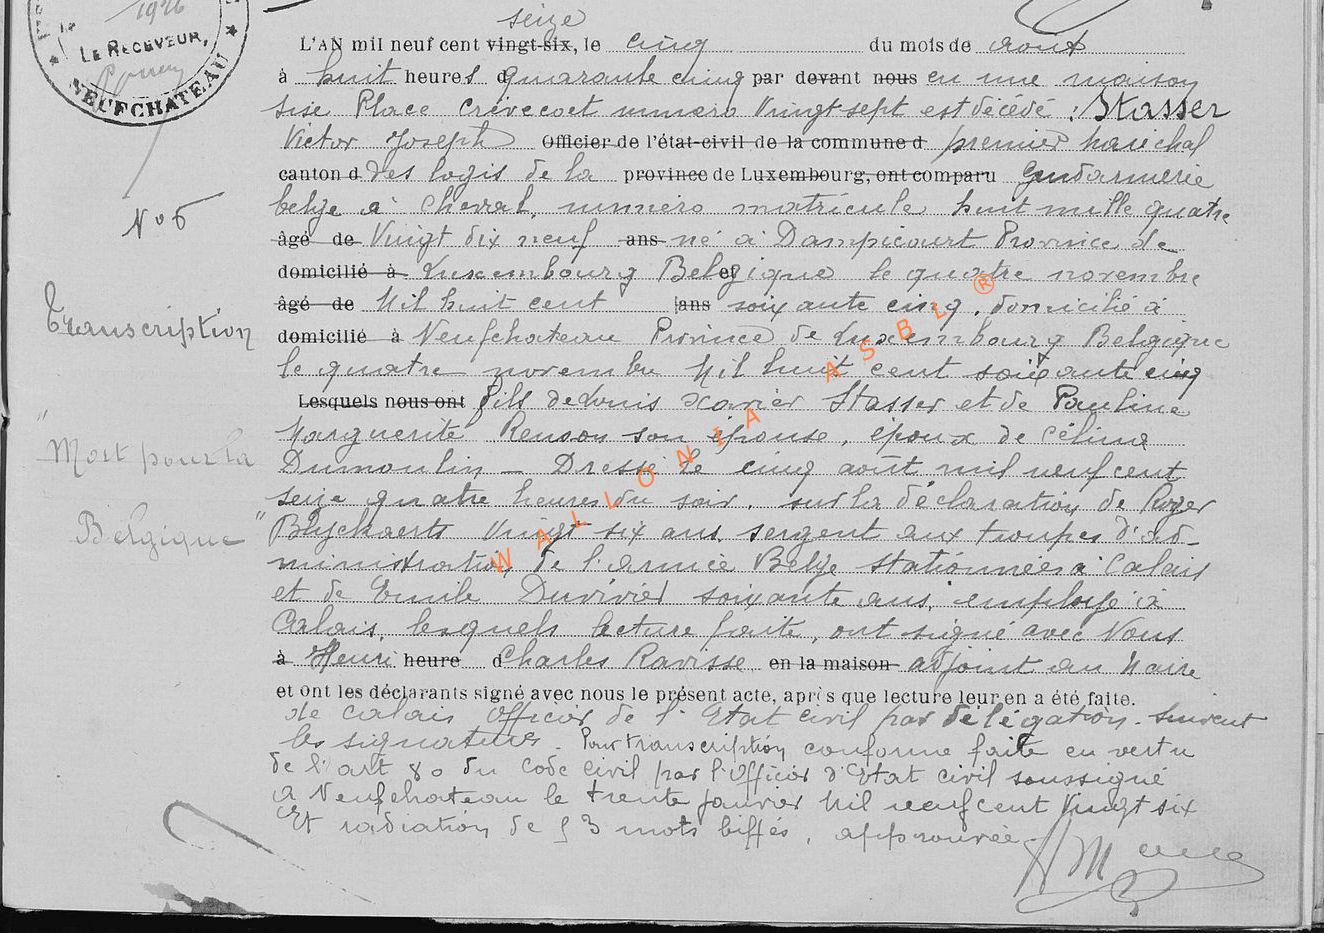 1926
LE RECEVEUR,
NEUFCHATEAU
seize
L'AN mil neuf cent vingt-six, le cinq du mois de aout
à huit heures d quarante cinq par devant nous en une maison
sise Place crèvecoeur numéro Vingt sept est décédé : Stasser
Victor Joseph Officier de l'état-civil de la commune d premier maréchal
canton d des logis de la province de Luxembourg, ont comparu Gendarmerie
belge à cheval, numéro matricule huit mille quatre
N° 6
âgé de Vingt dix neuf ans né à Dampicourt Province de
domicilié à Luxembourg Belgique le quatre novembre
âgé de Mil huit cent ans soixante cinq, domicilié à
Transcription
domicilié à Neufchateau Province de Luxembourg Belgique
le quatre novembre Mil huit cent soixante cinq
Lesquels nous ont fils de Louis Xavier Stasser et de Pauline
Marguerite Renson son épouse, époux de Céline
"Mort pour la
Dumoulin – Dressé le cinq août mil neuf cent
seize quatre heures du soir, sur la déclaration de Roger
Belgique"
Blyckaerts Vingt six ans, sergent aux troupes d'ad-
ministration de l'armée Belge stationnées à Calais
et de Emile Duvivier soixante ans, employé à
Calais, lesquels lecture faite, ont signé avec Nous
à Henri heure d Charles Ravisse en la maison adjoint au Maire
et ont les déclarants signé avec nous le présent acte, après que lecture leur en a été faite.
de Calais Officier de l'Etat civil par délégation. Suivent
les signatures. Pour transcription conforme faite en vertu
de l'art 80 du Code civil, par l'Officier d'Etat civil soussigné
à Neufchateau le trente janvier Mil neuf cent vingt six
Et radiation de 53 mots biffés, approuvée.
WALLONIA ASBL ®